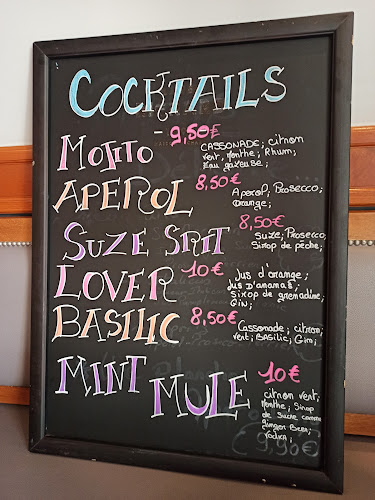 COCKTAILS
MOJITO - 9,50€ CASSONADE; citron
vert, Menthe; Rhum;
Eau gazeuse;
APEROL 8,50€ Aperol, Prosecco;
Orange;
SUZE SPIT 8,50€ SUZE, Prosecco;
Sirop de pêche;
LOVER 10€ Jus d'orange;
Jus D'ananas;
Sirop de grenadine;
Gin;
BASILIC 8,50€ Cassonade; citron;
vert; BASILIC; Gin;
MINT MULE 10€ citron vert;
Menthe; Sirop
de sucre canne
ginger Beer;
Vodka;
9,90€